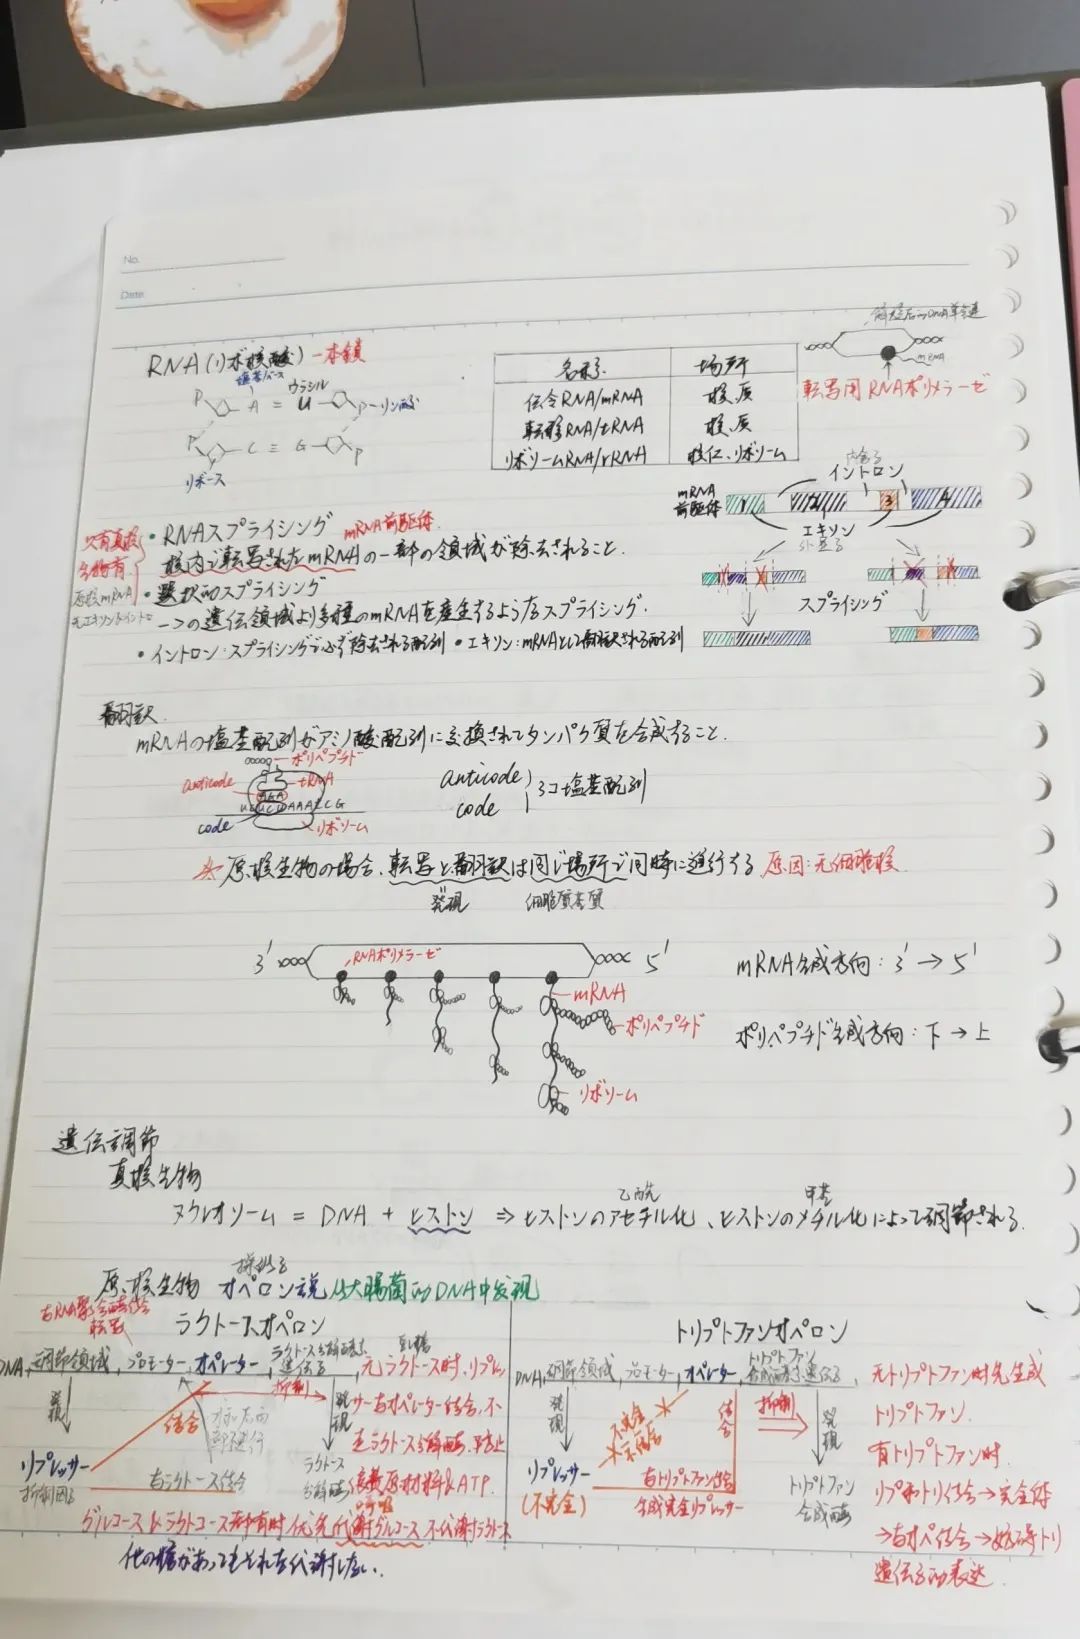 No.
Date
RNA(リボ核酸) 一本鎖
塩基/ベース
ウラシル
P A = U P-リン酸
P C ≡ G P
リボース
名称 場所
伝令RNA/mRNA 核質
転移RNA/tRNA 核質
リボソームRNA/rRNA 核仁、リボソーム
解旋后的DNA单链
mRNA
転写用RNAポリメラーゼ
・RNAスプライシング mRNA前駆体
核内で転写されたmRNAの一部の領域が除去されること.
・選択的スプライシング
一つの遺伝領域より多種のmRNAを産生するようなスプライシング.
・イントロン:スプライシングで必ず除去される配列 ・エキソン:mRNAとして翻訳される配列
只有真核
生物有
原核mRNA
无エキソン&イントロン
内含子
イントロン
mRNA
前駆体
1 2 3 4
エキソン
外显子
スプライシング
翻訳.
mRNAの塩基配列がアミノ酸配列に交換されてタンパク質を合成すること.
ポリペプチド
anticode tRNA
AGA
code リボソーム
anticode
code
3コ塩基配列
※ 原核生物の場合、転写と翻訳は同じ場所で同時に進行する 原因:无细胞核.
発現 细胞质基质
3' RNAポリメラーゼ 5'
mRNA合成方向: 3' → 5'
mRNA
ポリペプチド
ポリペプチド合成方向: 下 → 上
リボソーム
遺伝調節
真核生物
乙酰 甲基
ヌクレオソーム = DNA + ヒストン ⇒ ヒストンのアセチル化、ヒストンのメチル化によって調節される.
操纵子
原核生物 オペロン説 从大腸菌的DNA中发现
与RNA聚合酶结合
転写
ラクトースオペロン
DNA 調節領域, プロモーター, オペレーター, ラクトース分解酵素遺伝子
乳糖
発現
結合
抑制
発現
リプレッサー
抑制因子
与ラクトース结合
ラクトース
分解酶
无ラクトース时,リプレッ
サー与オペレーター结合,不
造ラクトース分解酶,防止
浪费原材料&ATP.
グルコース&ラクトース都有时优先代謝グルコース不代謝ラクトース
他の糖があってもそれを代謝しない.
トリプトファンオペロン
DNA 調節領域, プロモーター, オペレーター, トリプトファン合成酵素遺伝子,
発現
不完全
不结合
結合
抑制
発現
リプレッサー
(不完全)
与トリプトファン结合
合成完全リプレッサー
トリプトファン
合成酶
无トリプトファン时先生成
トリプトファン.
有トリプトファン时.
リプ和トリ结合→完全体
→与オペ结合→妨碍トリ
遺伝子的表达.